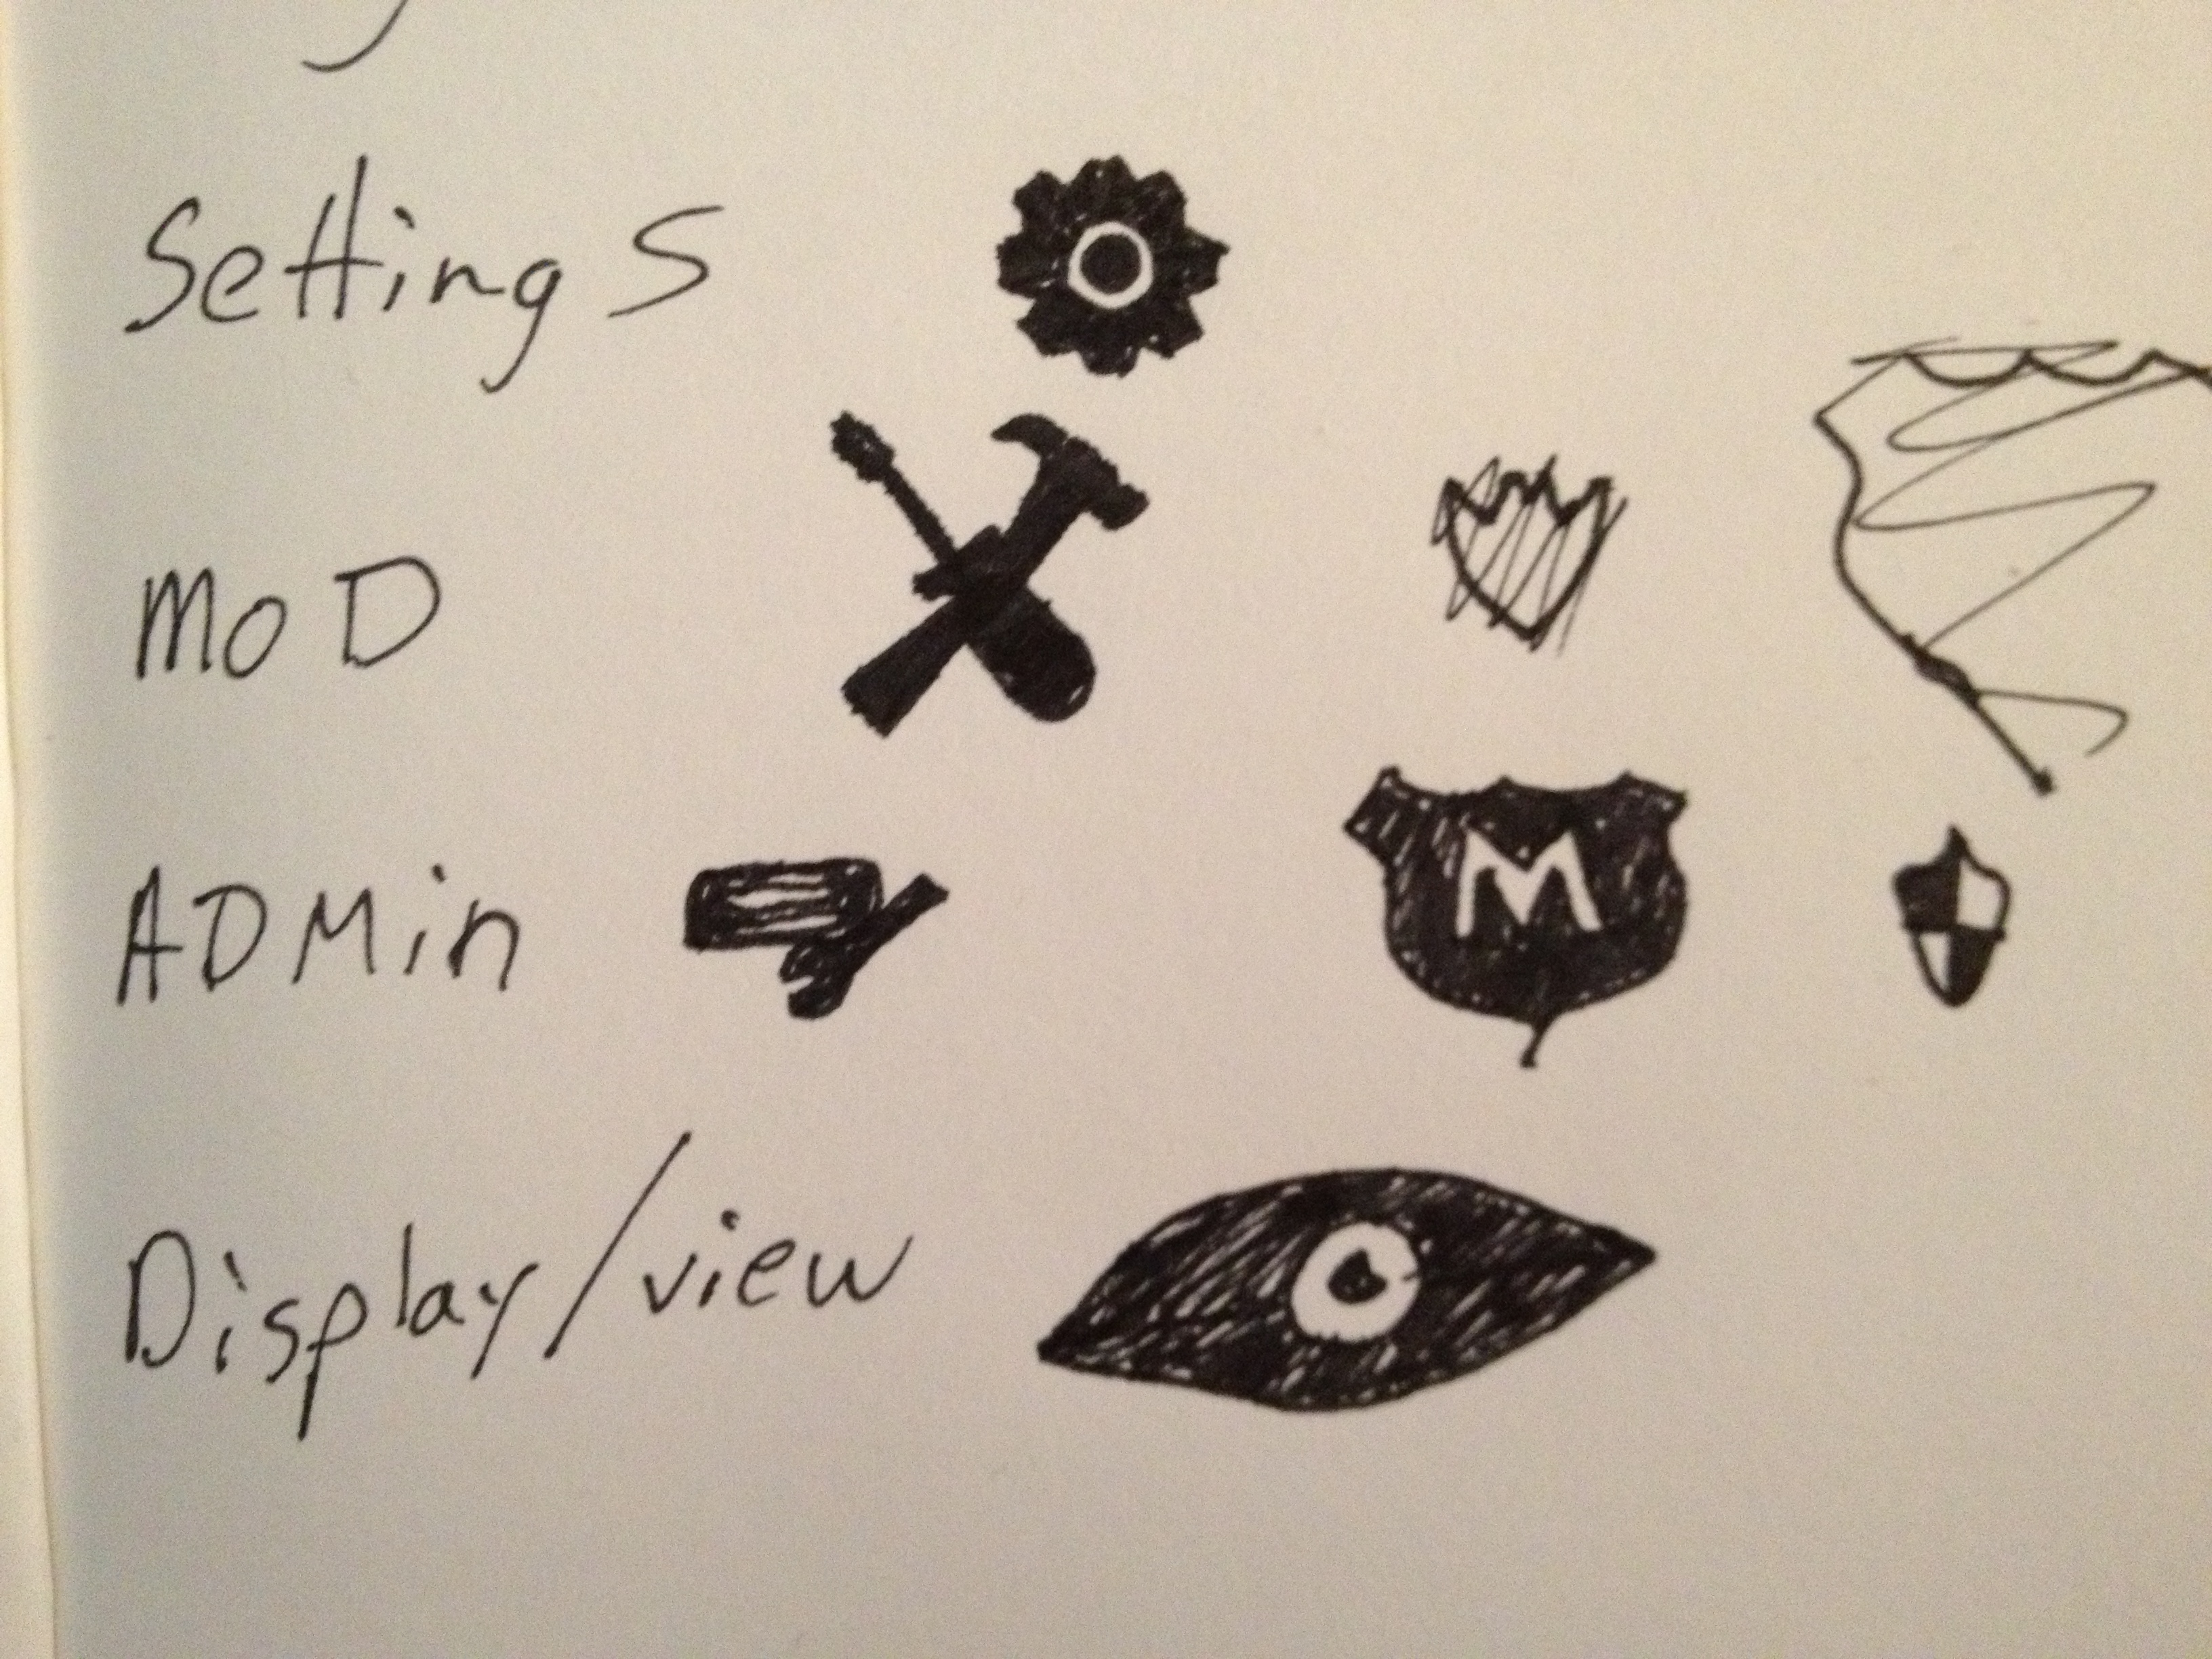 Settings
MoD
ADMin
M
Display/view